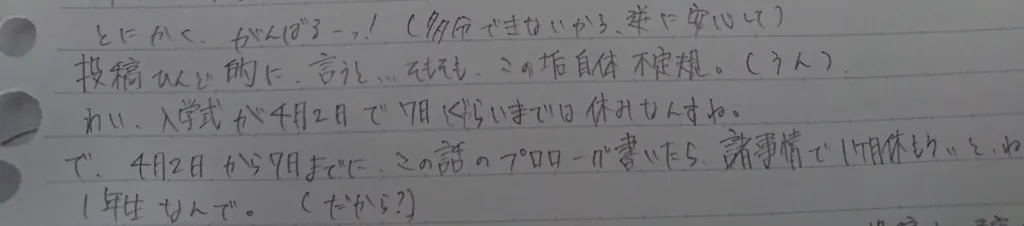 とにかく、がんばるーっ!(多分できないから、逆に安心して)
投稿ひんど的に、言うと…そもそも、この垢自体不定規。(うん)
わい、入学式が4月2日で7日くらいまでは休みなんすね。
で、4月2日から7日までに、この話のプロローグ書いたら、諸事情で1ヶ月休もうと、わ
1年生なんで。(だから?)